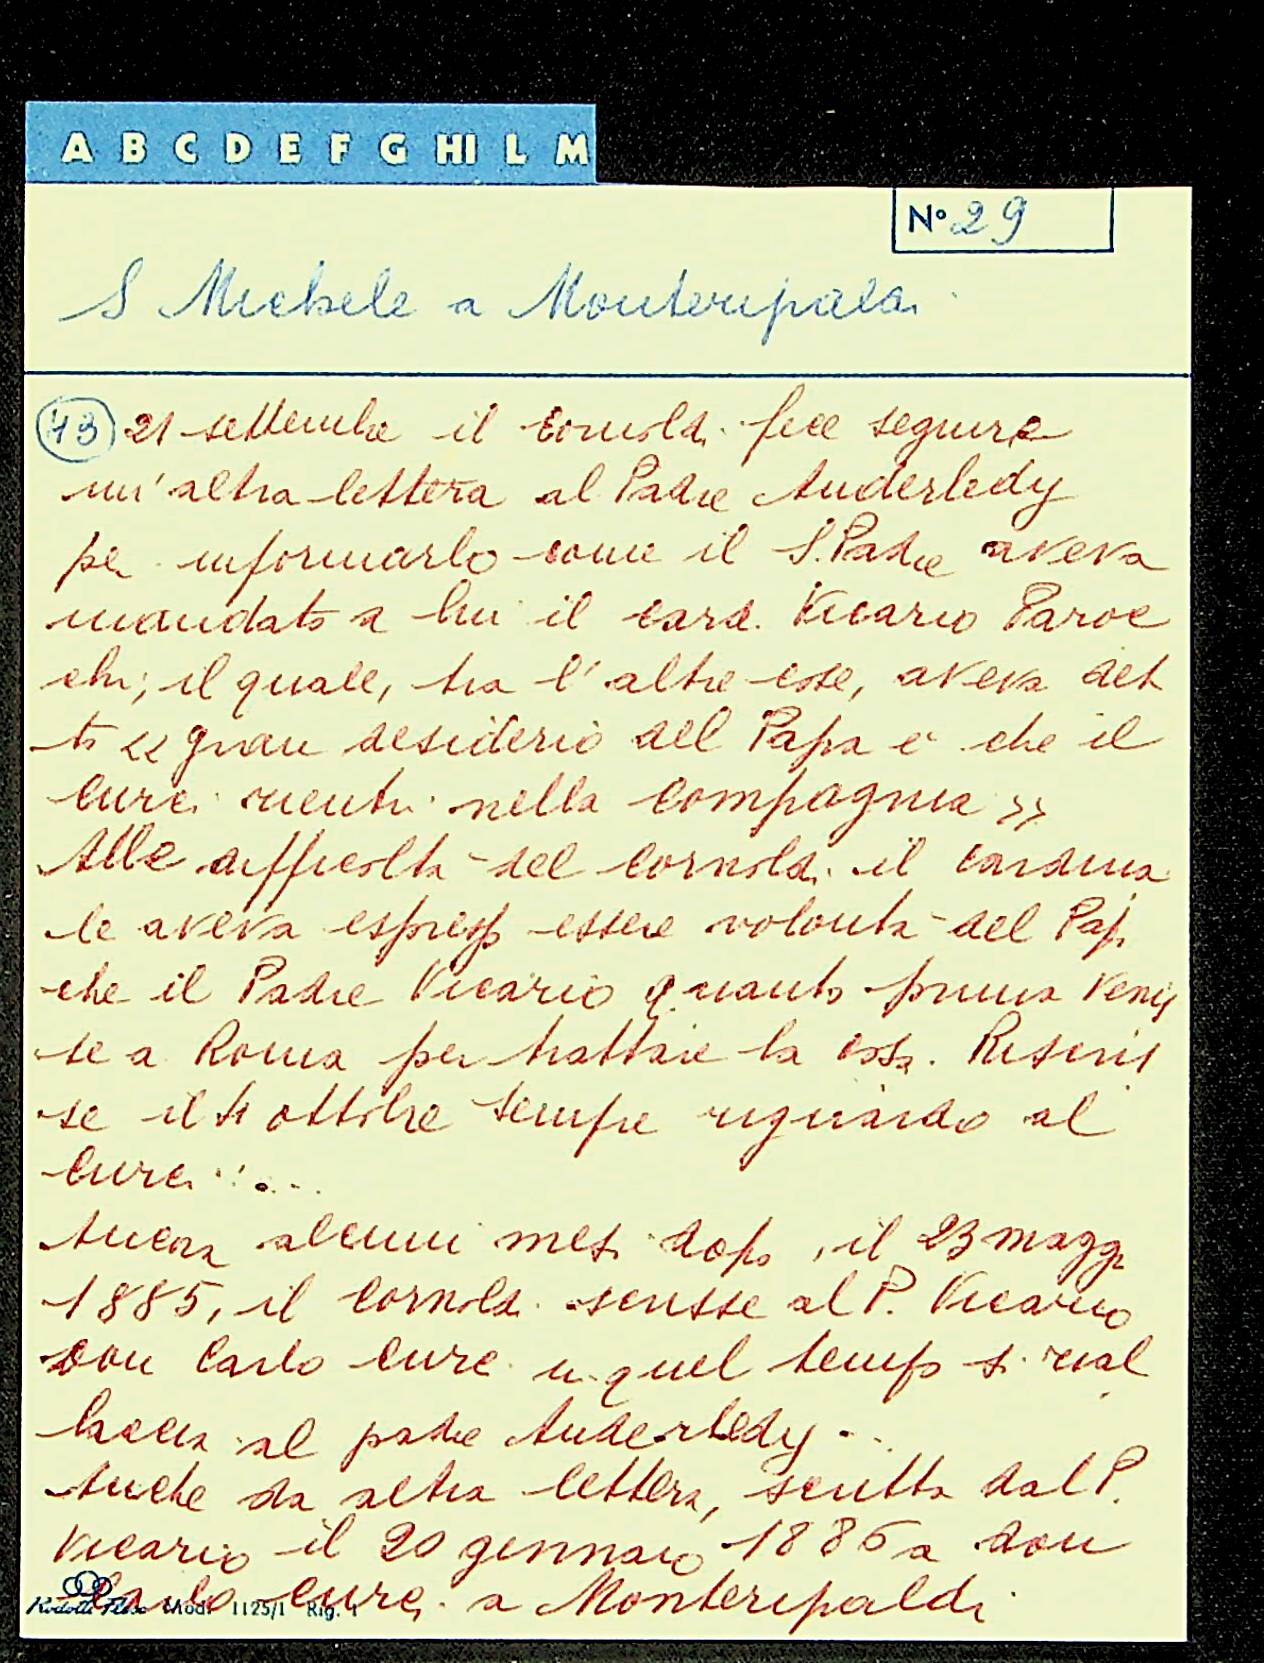 A B C D E F G HI L M
N° 29
S Michele a Monteripaldi
43 21 settembre il Cornoldi fece seguire
un'altra lettera al Padre Anderledy
per informarlo come il S. Padre aveva
mandato a lui il card. Vicario Paroc
chi; il quale, tra l'altre cose, aveva det
to << gran desiderio del Papa è che il
Curci rientri nella compagnia >>
Alle difficoltà del Cornoldi il cardina
le aveva espresso essere volontà del Papa
che il Padre Vicario quanto prima venis
se a Roma per trattare la cosa. Riscris
se il 4 ottobre sempre riguardo al
Curci ....
Ancora alcuni mesi dopo, il 23 maggio
1885, il Cornoldi scrisse al P. Vicario
don Carlo Curci in quel tempo si rial
laccia al padre Anderledy ...
Anche da altra lettera, scritta dal P.
Vicario il 20 gennaio 1886 a don
Carlo Curci a Monteripaldi
Mod. 1125/1 Rig. 1